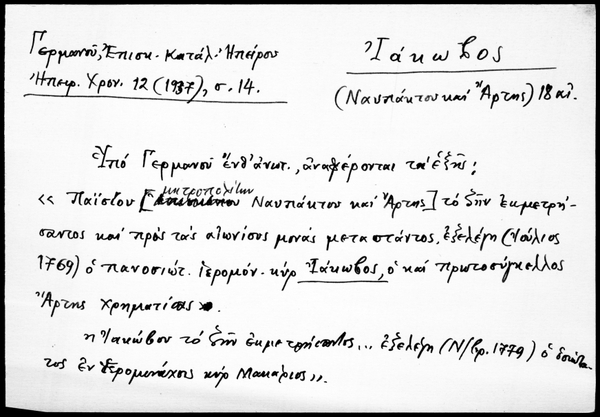 Γερμανοῦ, Ἐπισκ. Κατάλ. Ἠπείρου
Ἠπειρ. Χρον. 12 (1937), σ. 14.
Ἰάκωβος
(Ναυπάκτου καὶ Ἄρτης) 18 αἰ.
Ὑπό Γερμανοῦ ἔνθ' ἀνωτ., ἀναφέρονται τά ἑξῆς:
« Παϊσίου [μητροπολίτου Ναυπάκτου καὶ Ἄρτης] τό ζῆν ἐκμετρή-
σαντος καὶ πρός τάς αἰωνίους μονάς μεταστάντος, ἐξελέγη (Ἰούλιος
1769) ὁ πανοσιώτ. ἱερομόν. κύρ Ἰάκωβος, ὁ καί πρωτοσύγκελλος
Ἄρτης χρηματίσας.
Ἰακώβου τό ζῆν ἐκμετρήσαντος... ἐξελέγη (Ν/βρ. 1779) ὁ ὁσιώτα-
τος ἐν ἱερομονάχοις κύρ Μακάριος».